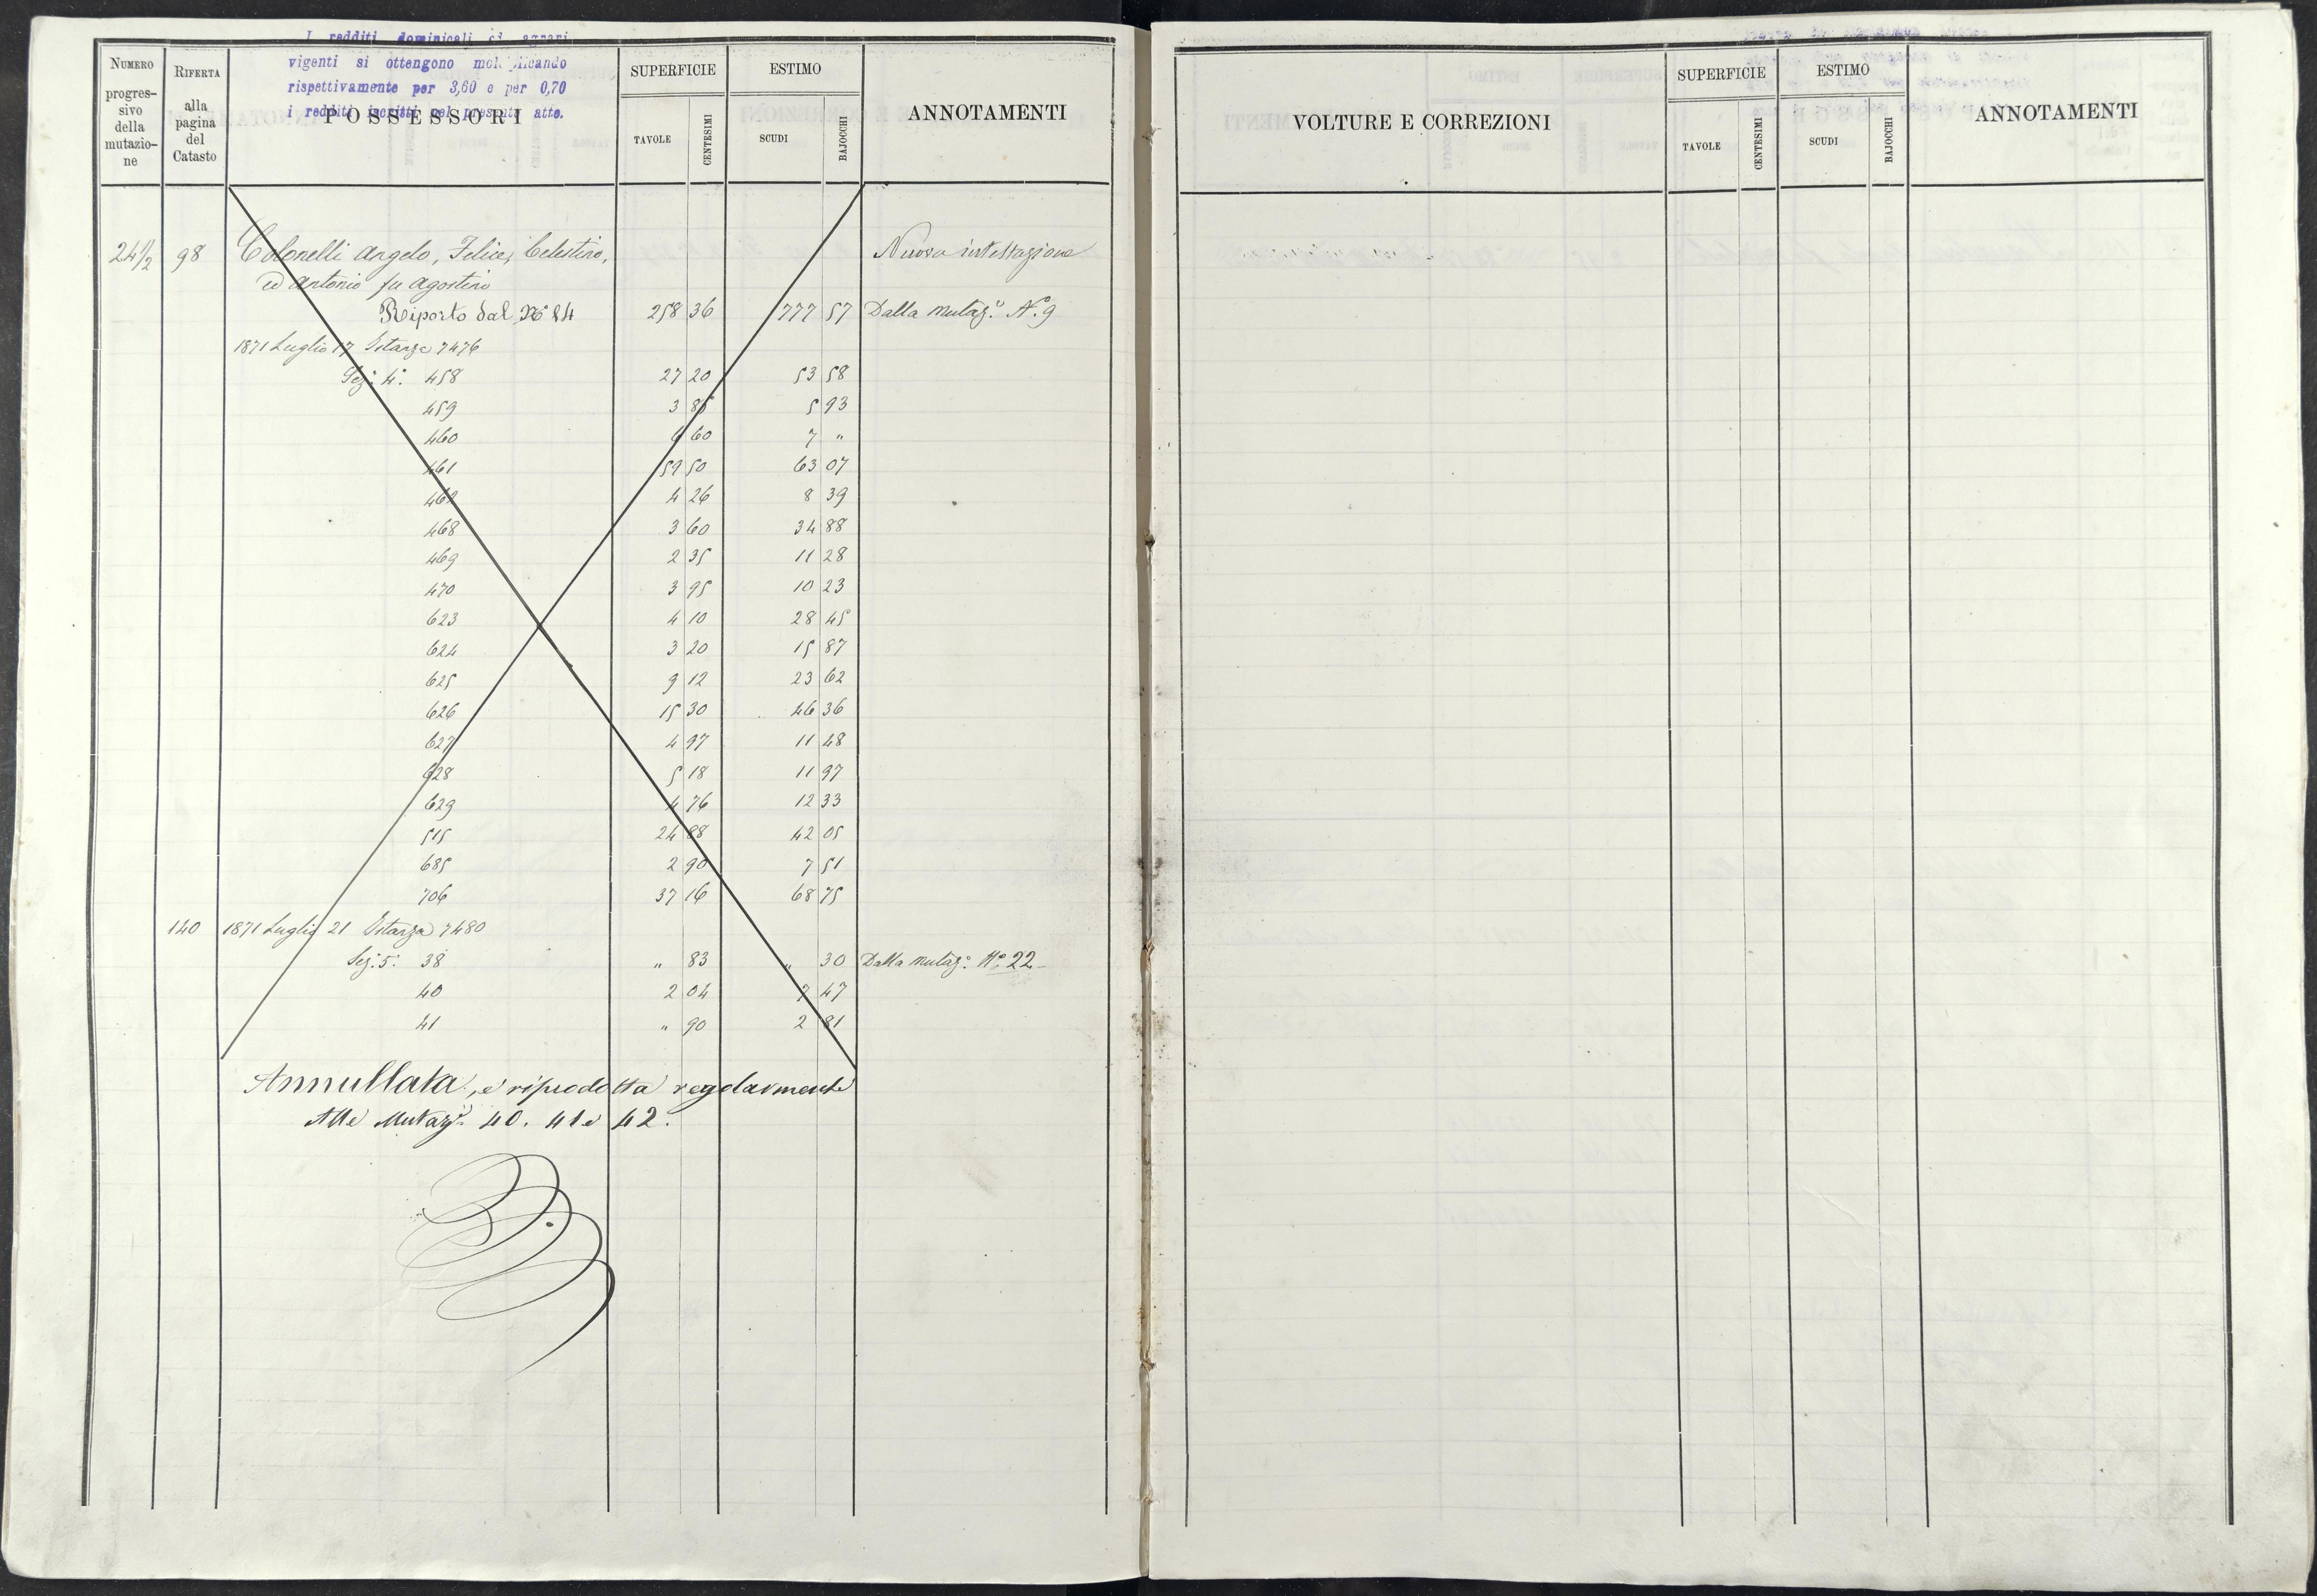 I redditi dominicali ed agrari
vigenti si ottengono moltiplicando
rispettivamente per 3,60 e per 0,70
i redditi iscritti nel presente atto.
NUMERO progres- sivo della mutazio- ne
RIFERTA alla pagina del Catasto
POSSESSORI
SUPERFICIE
TAVOLE CENTESIMI
ESTIMO
SCUDI BAJOCCHI
ANNOTAMENTI
24 1/2 98 Colonelli Angelo, Felice, Celestino, Nuova intestazione
ed Antonio fu Agostino
Riporto dal 258 36 777 57 Dalla Mutaz.e N.° 9
1871 Luglio 17 Istanza 7476
Sez.e 4.a 458 27 20 53 58
459 3 85 5 93
460 6 60 7 "
461 59 50 63 07
462 4 26 8 39
468 3 60 34 88
469 2 35 11 28
470 3 95 10 23
623 4 10 28 45
624 3 20 15 87
625 9 12 23 62
626 15 30 46 36
627 4 97 11 48
628 5 18 11 97
629 4 76 12 33
515 24 88 42 05
685 2 90 7 51
706 37 16 68 75
140 1871 Luglio 21 Istanza 7480
Sez.e 5.a 38 " 83 " 30 Dalla Mutaz.e N.° 22
40 2 04 7 47
41 " 90 2 81
Annullata, e riprodotta regolarmente
Alle Mutaz.i 40. 41 e 42.
VOLTURE E CORREZIONI
SUPERFICIE
TAVOLE CENTESIMI
ESTIMO
SCUDI BAJOCCHI
ANNOTAMENTI